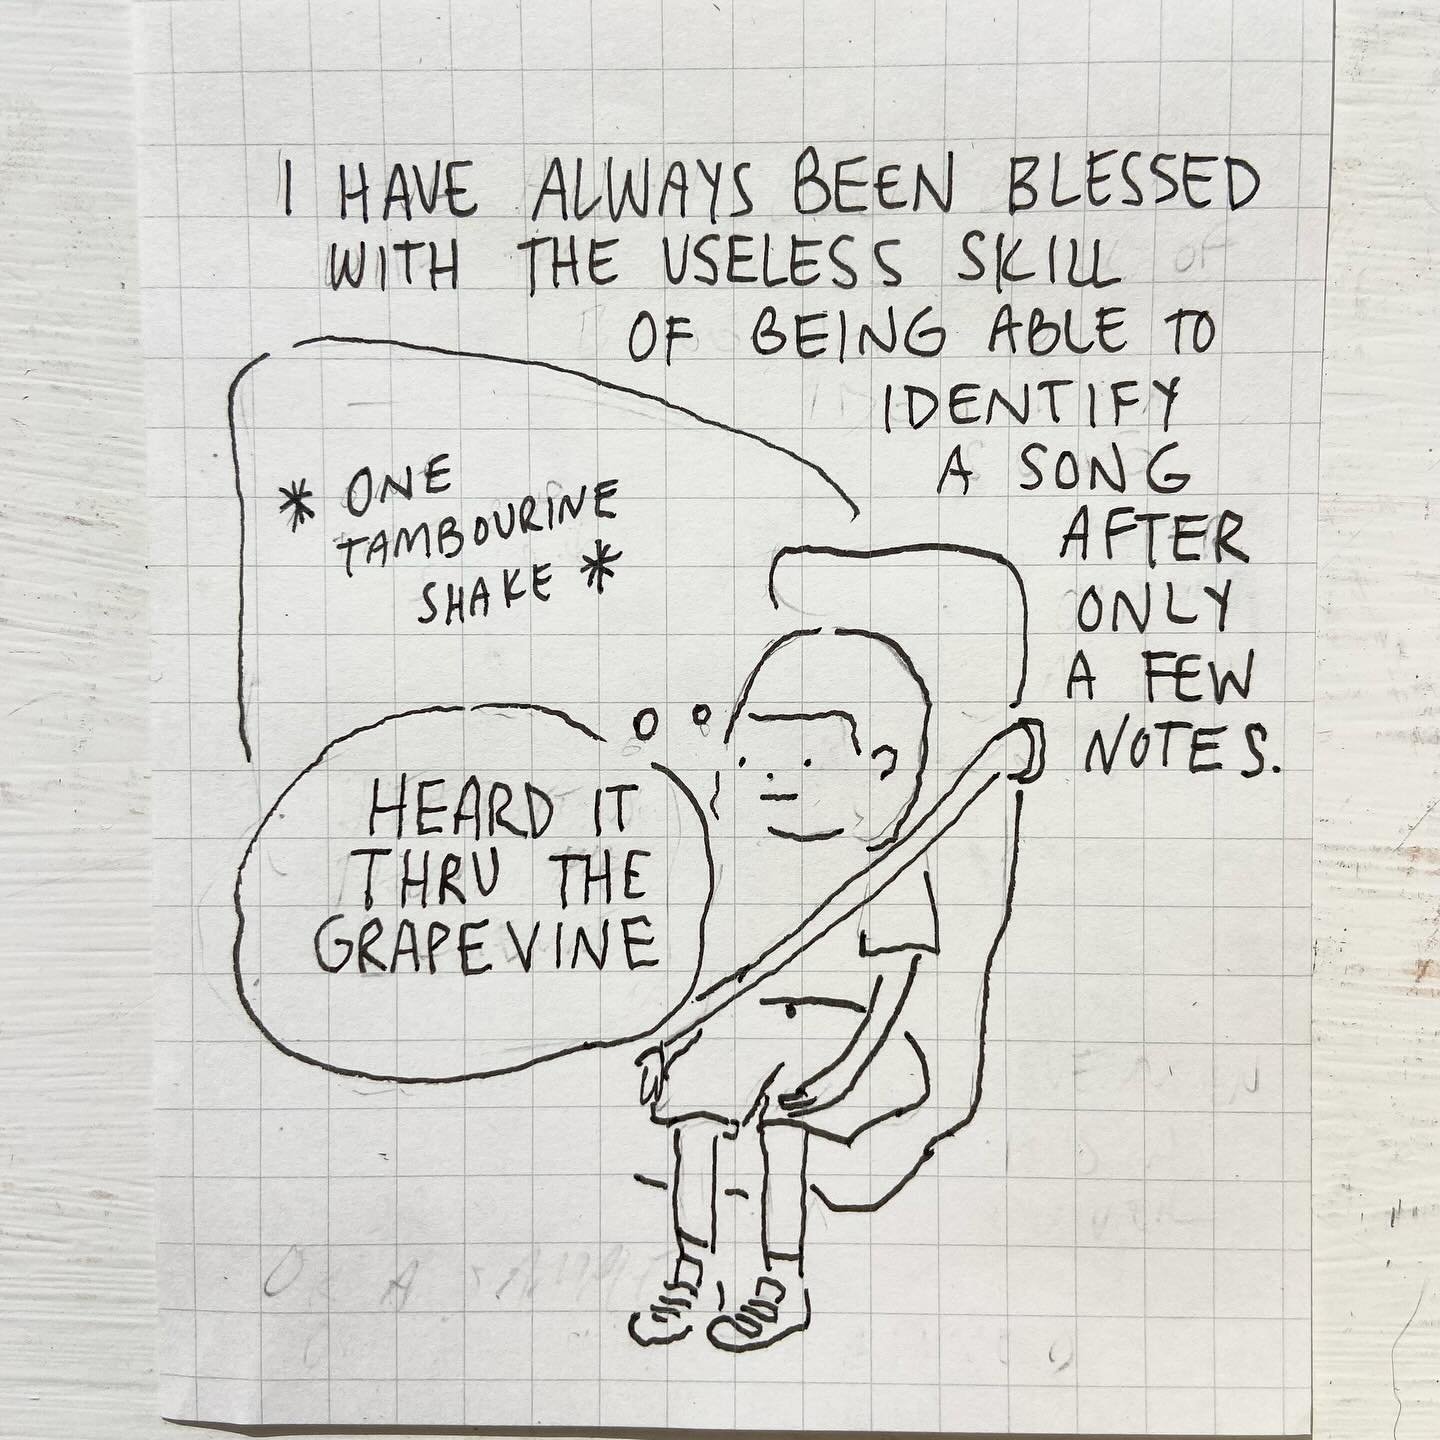 I HAVE ALWAYS BEEN BLESSED
WITH THE USELESS SKILL
OF BEING ABLE TO
IDENTIFY
A SONG
AFTER
ONLY
A FEW
NOTES.
* ONE
TAMBOURINE
SHAKE *
HEARD IT
THRU THE
GRAPEVINE